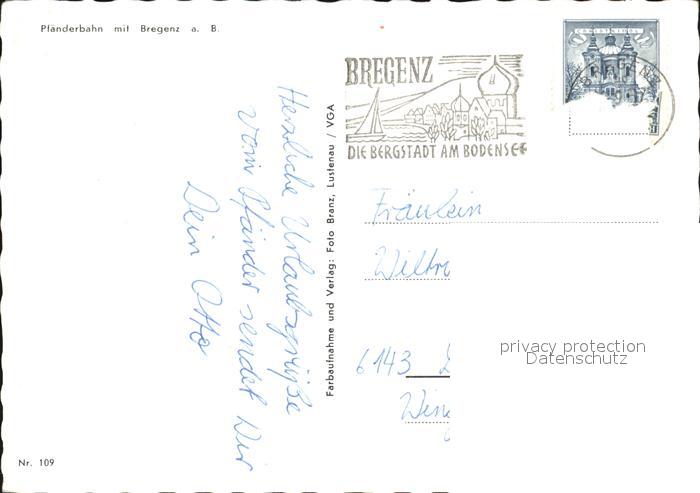 Pfänderbahn mit Bregenz a. B.
Herzliche Urlaubsgrüße
vom Pfänder sendet Dir
Dein Otto
Nr. 109
Farbaufnahme und Verlag: Foto Branz, Lustenau / VGA
BREGENZ
DIE BERGSTADT AM BODENSEE
CHRISTKINDL
BREGENZ
Fräulein
Wiltr
6143
privacy protection
Datenschutz